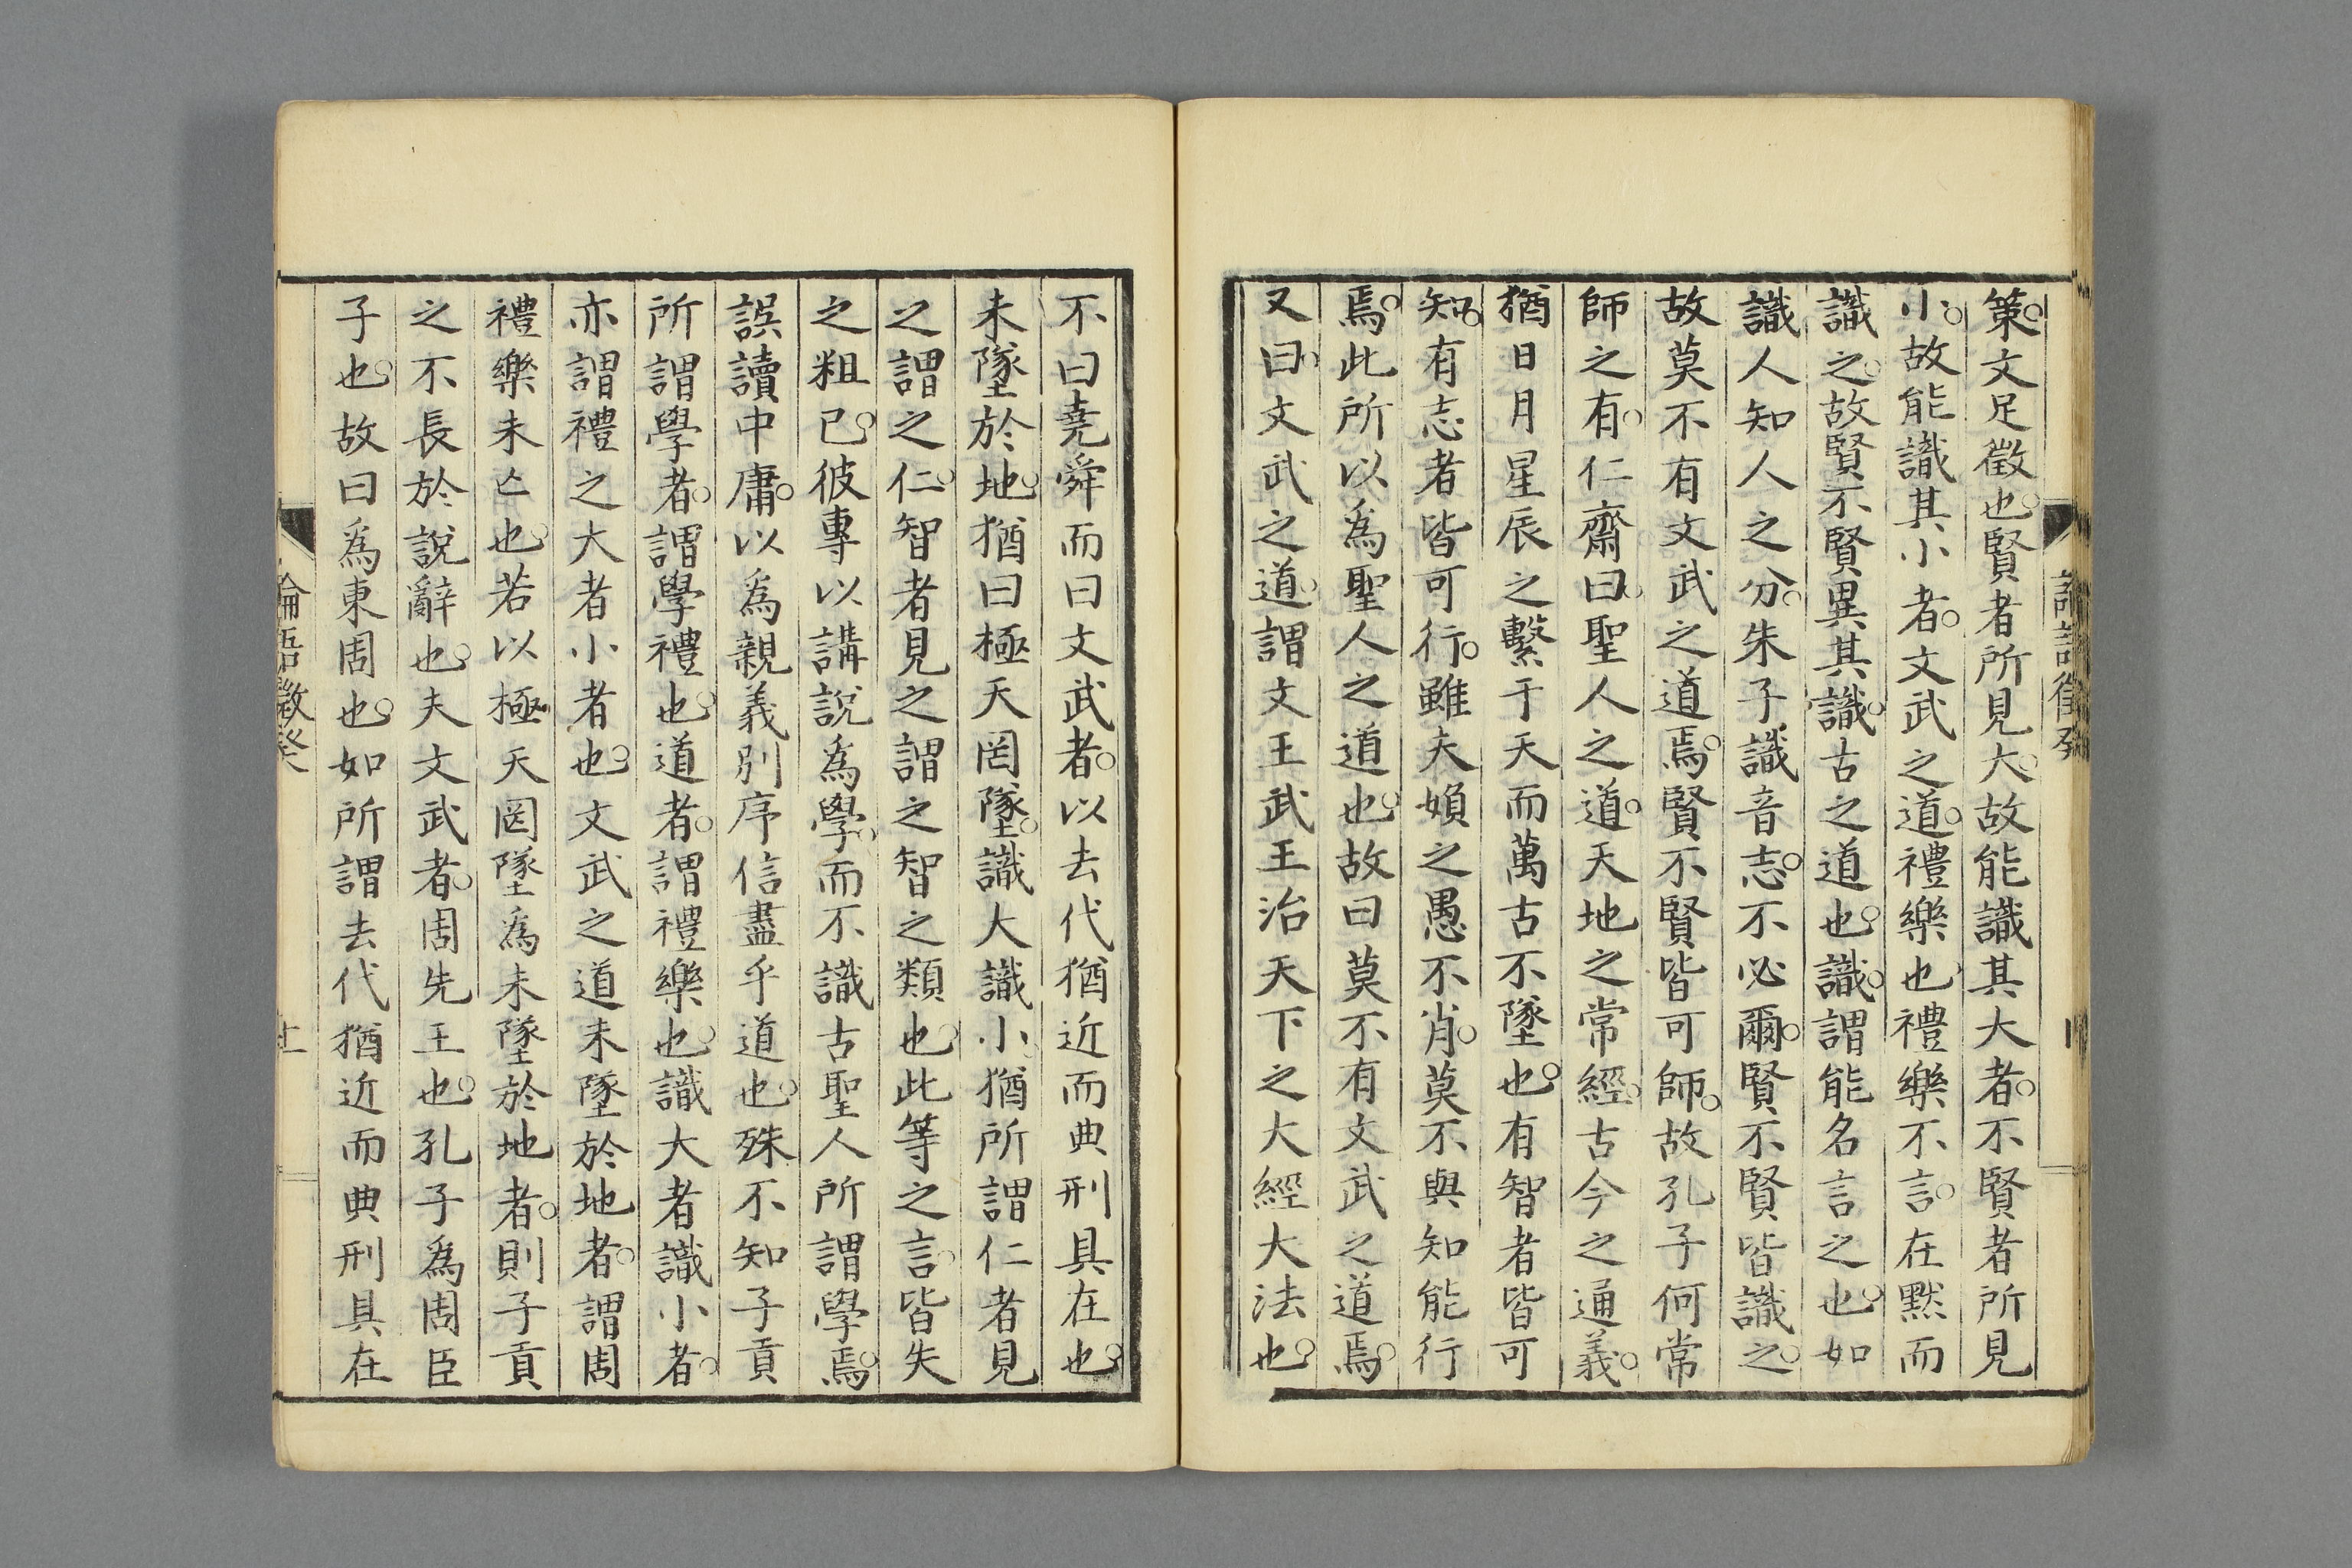 策。文足徵也。賢者所見大。故能識其大者。不賢者所見
小。故能識其小者。文武之道。禮樂也。禮樂不言。在默而
識之。故賢不賢異其識。古之道也。識。謂能名言之也。如
識人知人之分。朱子識音志。不必爾。賢不賢皆識之。
故莫不有文武之道焉。賢不賢皆可師。故孔子何常
師之有。仁齋曰。聖人之道。天地之常經。古今之通義。
猶日月星辰之繫于天而萬古不墜也。有智者皆可
知。有志者皆可行。雖夫婦之愚不肖。莫不與知能行
焉。此所以爲聖人之道也。故曰莫不有文武之道焉。
又曰。文武之道。謂文王武王治天下之大經大法也。
不曰堯舜而曰文武者。以去代猶近而典刑具在也。
未墜於地。猶曰極天罔墜。識大識小。猶所謂仁者見
之謂之仁。智者見之謂之智之類也。此等之言。皆失
之粗已。彼專以講說爲學。而不識古聖人所謂學焉。
誤讀中庸。以爲親義別序信盡乎道也。殊不知子貢
所謂學者。謂學禮也。道者。謂禮樂也。識大者識小者。
亦謂禮之大者小者也。文武之道未墜於地者。謂周
禮樂未亡也。若以極天罔墜爲未墜於地者。則子貢
之不長於說辭也。夫文武者。周先王也。孔子爲周臣
子也。故曰爲東周也。如所謂去代猶近而典刑具在
論語徵癸
十一